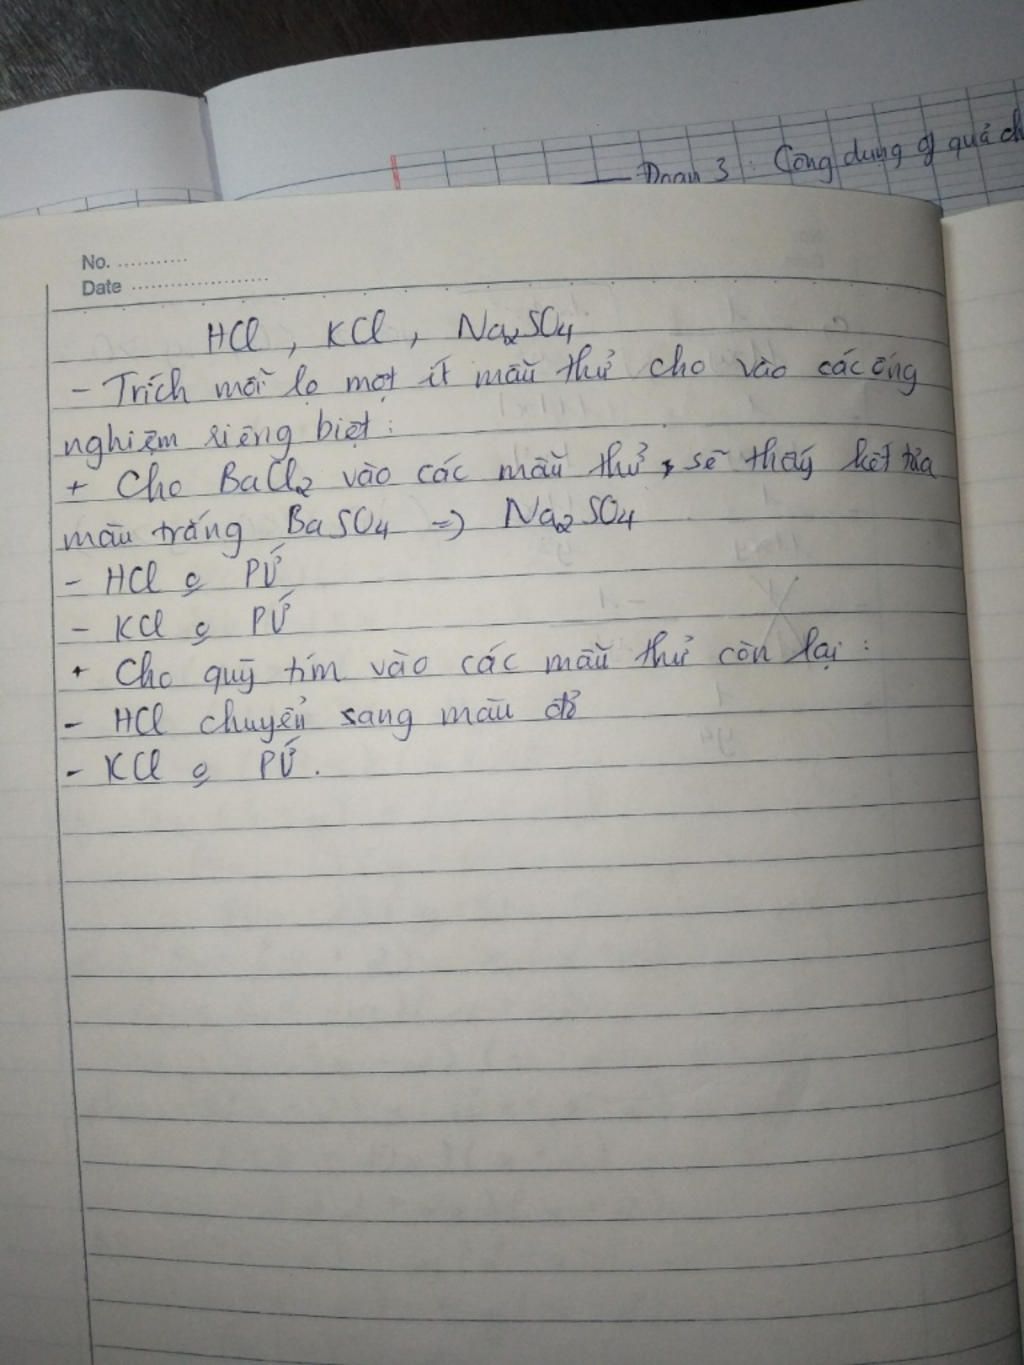 Đoạn 3: Công dụng of quả ch
No. ...........
Date ......................
HCl, KCl, Na₂SO₄
- Trích mỗi lọ một ít mẫu thử cho vào các ống
nghiệm riêng biệt:
+ Cho BaCl₂ vào các mẫu thử, sẽ thấy kết tủa
màu trắng BaSO₄ => Na₂SO₄
- HCl o PỨ
- KCl o PỨ
+ Cho quỳ tím vào các mẫu thử còn lại:
- HCl chuyển sang màu đỏ
- KCl o PỨ.